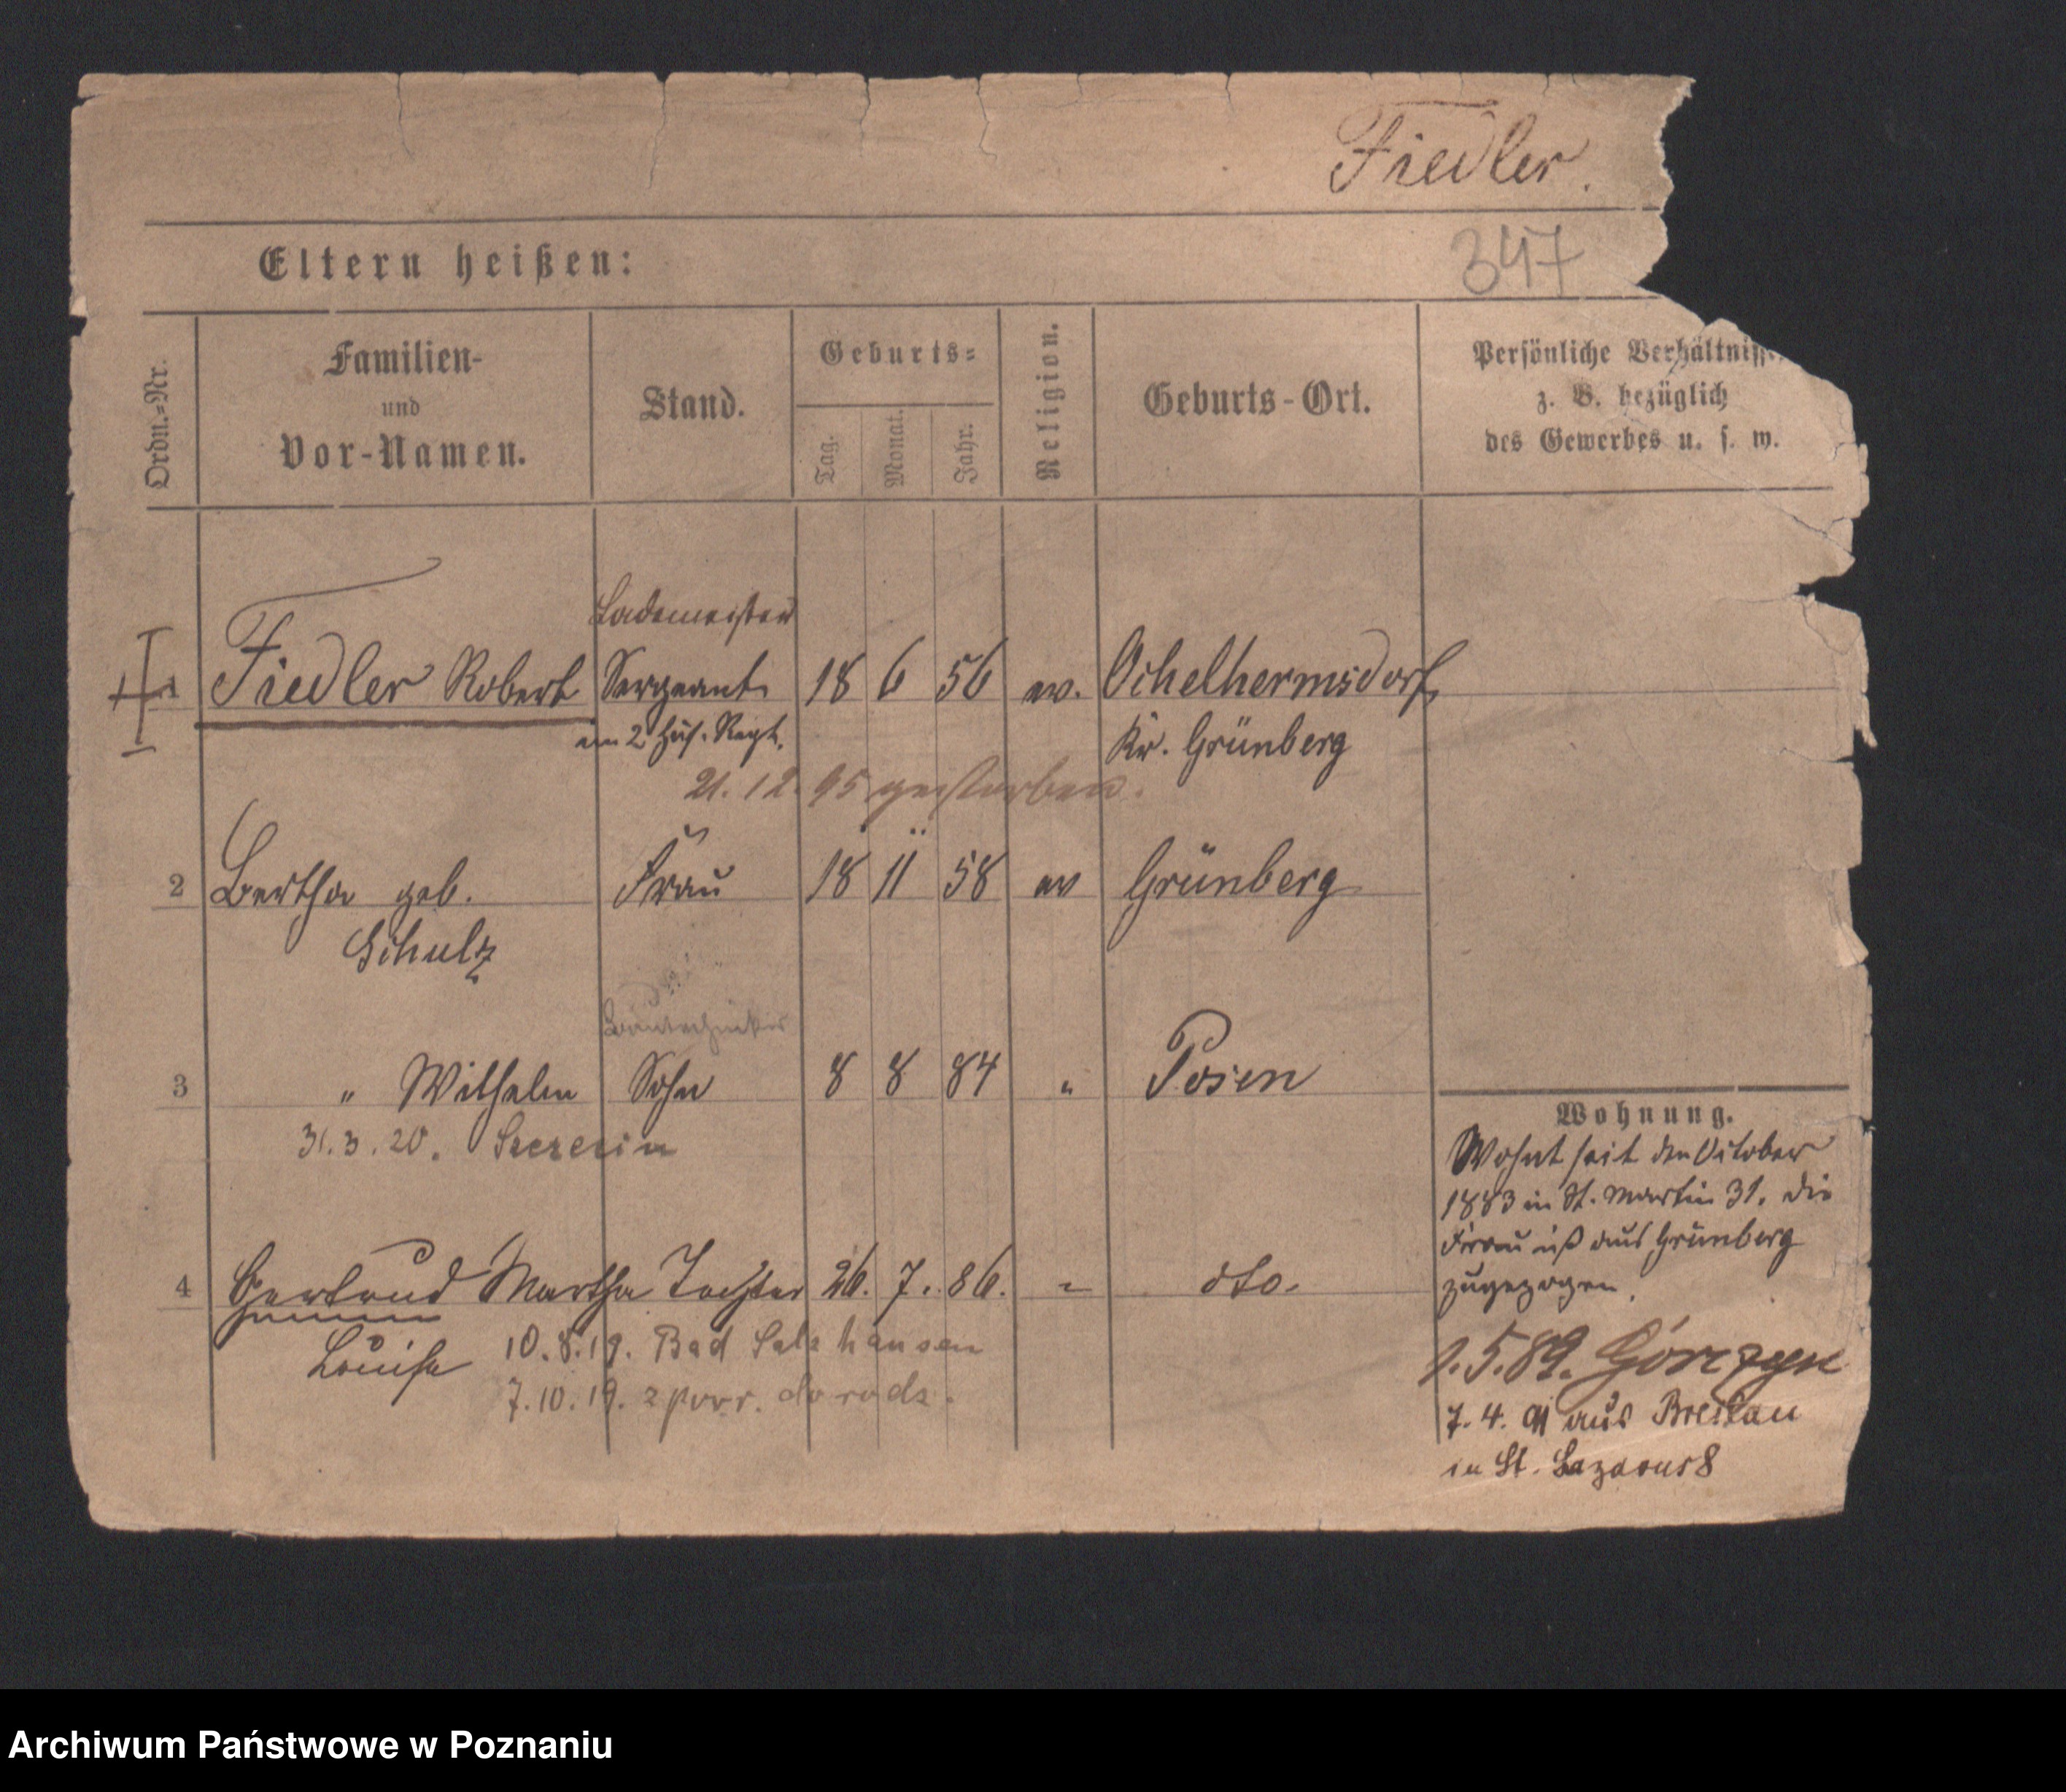 Fiedler.
347
Eltern heißen:
Ordn.-Nr.
Familien-
und
Vor-Namen.
Stand.
Geburts-
Tag.
Monat.
Jahr.
Religion.
Geburts-Ort.
Persönliche Verhältnisse
z. B. bezüglich
des Gewerbes u. s. w.
Lademeister
1 Fiedler Robert Sergeant 18 6 56 ev. Ochelhermsdorf
im 2. Hus. Regt. Kr. Grünberg
21.12.95 gestorben.
2 Bertha geb. Frau 18 11 58 ev Grünberg
Schulz
Bautechniker
3 " Wilhelm Sohn 8 8 84 " Posen
31.3.20. Szczecin
4 Gertrud Martha Tochter 26. 7. 86. " dto.
Louise 10.8.19. Bad Salzhausen
7.10.19. z powr. do rodz.
Wohnung.
Wohnt seit den October
1883 in St. Martin 31. Die
Frau ist aus Grünberg
zugezogen.
1.5.89. Górczyn
7.4.91 aus Breslau
in St. Lazarus 8
Archiwum Państwowe w Poznaniu